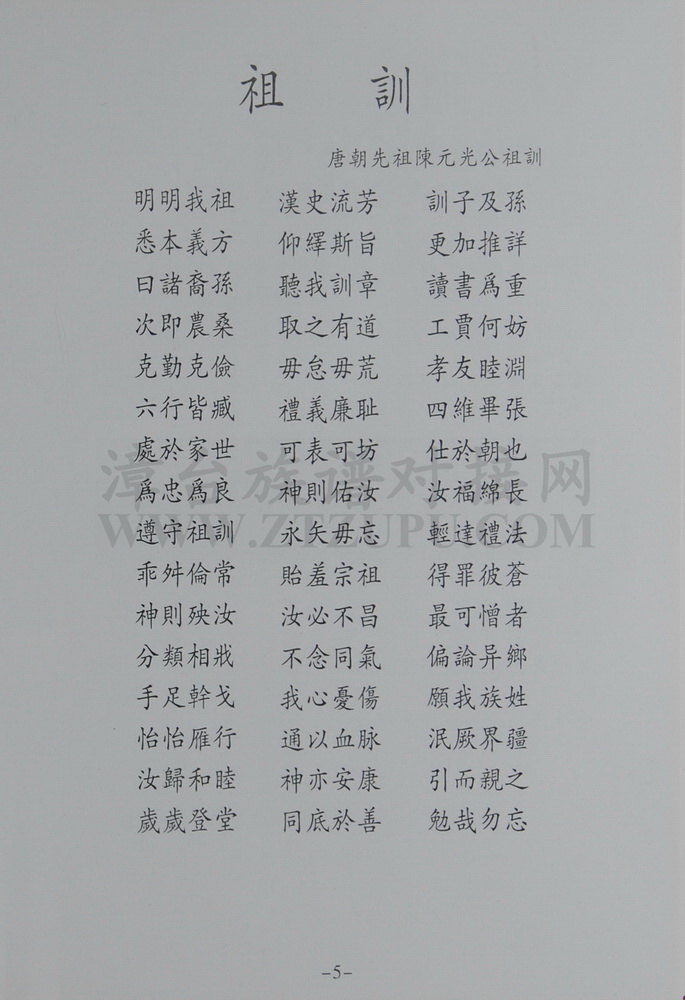 祖 訓
唐朝先祖陳元光公祖訓
明明我祖 漢史流芳 訓子及孫
悉本義方 仰繹斯旨 更加推詳
曰諸裔孫 聽我訓章 讀書爲重
次即農桑 取之有道 工賈何妨
克勤克儉 毋怠毋荒 孝友睦淵
六行皆臧 禮義廉耻 四維畢張
處於家世 可表可坊 仕於朝也
漳台族谱对接网
爲忠爲良 神則佑汝 汝福綿長
WWW.ZTZUPU.COM
遵守祖訓 永矢毋忘 輕達禮法
乖舛倫常 貽羞宗祖 得罪彼蒼
神則殃汝 汝必不昌 最可憎者
分類相戕 不念同氣 偏論异鄉
手足幹戈 我心憂傷 願我族姓
怡怡雁行 通以血脉 泯厥界疆
汝歸和睦 神亦安康 引而親之
歲歲登堂 同底於善 勉哉勿忘
-5-